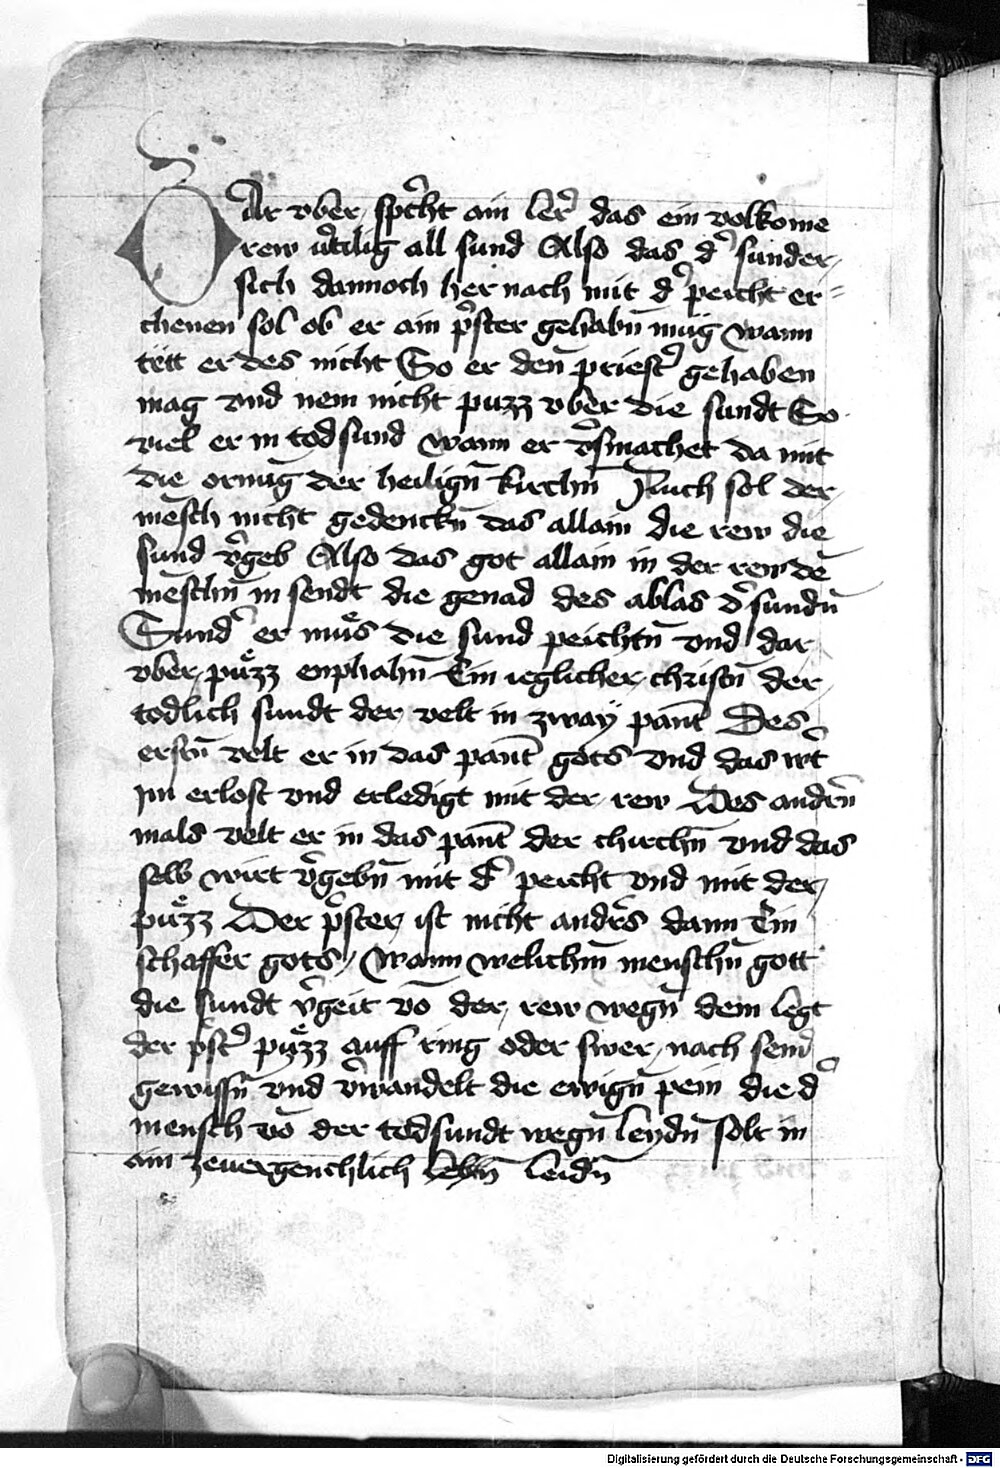 DAr vber spricht ain ler͛ das ein volkome
rew v͛tilig all sund Also das d͛ sunder
sich dannoch her nach mit d͛ peicht er=
chenen sol ob er ain p͛ster gehabn̄ mug wann
tëtt er des nicht So er den priest͛ gehaben
mag vnd nem nicht puzz vber die sundt So
viel er in tod sund wann er v͛smachet da mit
die ornūg der heilign̄ kirchn̄ Auch sol der
mēsch nicht gedenckn̄ das allain die rew die
sund v͛geb Also das got allain in der rew dē
mēschn̄ in sendt die genad des ablas d͛ sundn̄
Sund͛ er muͦs die sund peichtn̄ vnd dar
vber puͤzz enphahn̄ Ein ieglicher christn̄ der
todlich sundt der velt in zway pant Des
erstn̄ velt er in das pant gots vnd das wt͛
im erlost vnd erledigt mit der rew Des andrn̄
mals velt er in das pant der chirchn̄ vnd das
selb wirt v͛gebn̄ mit d͛ peicht vnd mit der
puͤzz Der p͛ster ist nicht andr͛s dann Ein
schaffer gots Wann welichm̄ menschn̄ gott
die sundt v͛geit vō der rew wegn̄ dem legt
der p͛st͛ puͤzz auff ring oder swer nach sein͛
gewissn̄ vnd v͛wandelt die ewign̄ pein die d͛
mensch vō der todsundt wegn̄ leydn̄ solt in
ain zeuergenchlich lebn̄ leidn̄
Digitalisierung gefördert durch die Deutsche Forschungsgemeinschaft - DFG